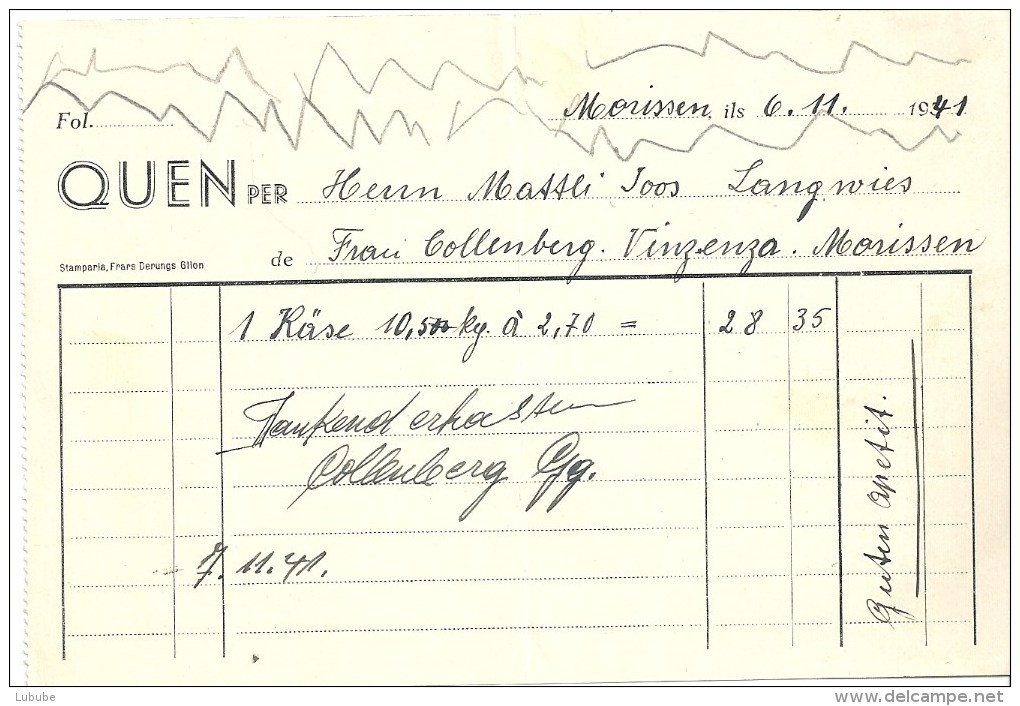 Fol.
Morissen, ils 6.11. 1941
QUEN PER Herrn Mattli Joos Langwies
de Frau Collenberg. Vinzenza. Morissen
Stamparia, Frars Derungs Glion
1 Käse 10,500 kg. à 2,70 = 28 35
Dankend erhalten
Collenberg Gg.
7. 11. 41.
Guten Apetit.
Lubube
www.delcampe.net